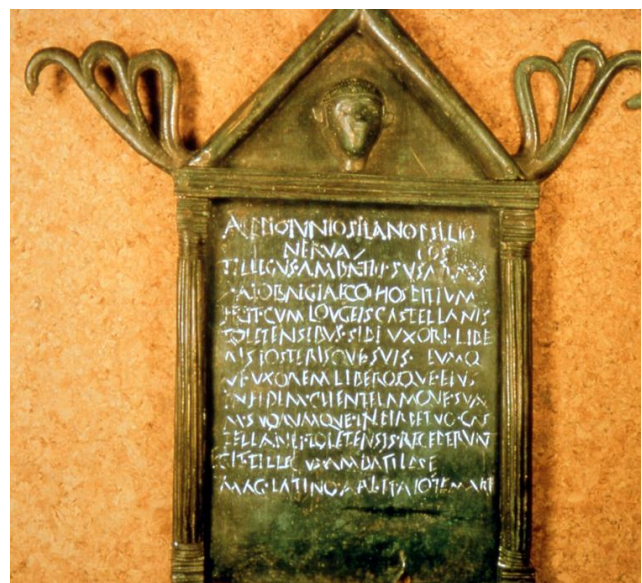 A LICINIO NERVA SILIANO
COS
TILLEGUS AMBATI F SUSARRUS
AIOBAIGIAECO HOSPITIUM
FECIT CUM LOUGEIS CASTELLANIS
TOLETENSIBUS SIBI UXORI LIBE
RIS POSTERISQUE SUIS EUMQ
UE UXOREM LIBEROSQUE EIUS
IN FIDEM CLIENTELAMQUE SUA
M SUORUMQUE IN PERPETUO CAS
TELLANEI TOLETENSIS RECEPERUNT
EGIT TILLEGUS AMBATI IPSE
MAG LATINO ARI ET AIO TEMARI